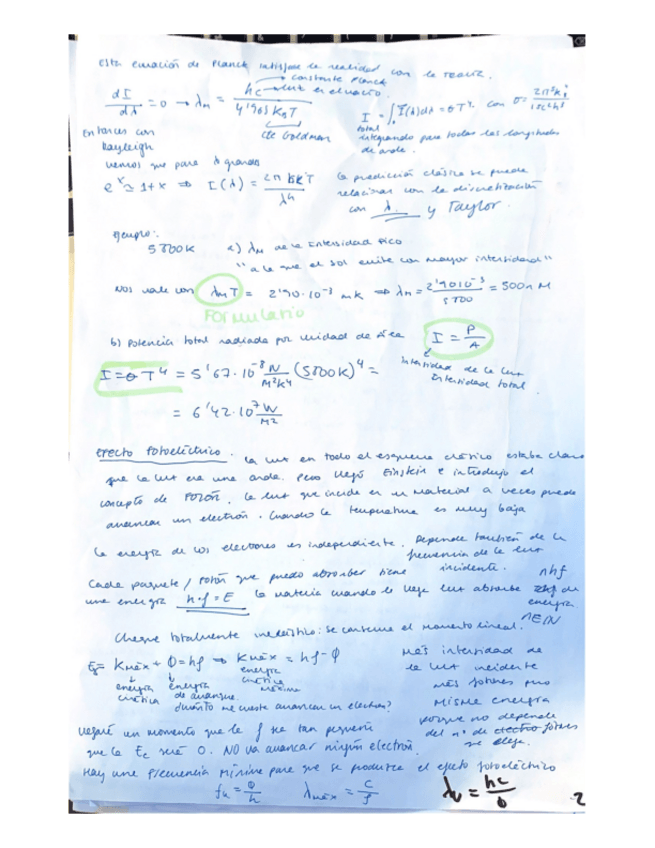 Esta ecuación de Planck satisface la realidad con la teoría.
constante Planck
dI/dλ = 0 → λm = hc / 4'965 KBT
luz en el vacío
cte Boldman
I = ∫ I(λ)dλ = σT⁴ con σ =
total
integrando para todas las longitudes
de onda.
Entonces con
Rayleigh
vemos que para λ grande
eˣ ≃ 1+x ⇒ I(λ) = 2π KT / λ⁴
la predicción clásica se puede
relacionar con la discretización
con λ y Taylor.
Ejemplo:
5800K a) λm de la intensidad pico
"a la que el sol emite con mayor intensidad"
Nos vale con λmT = 2'90·10⁻³ mK ⇒ λm = 2'90·10⁻³ / 5800 = 500nM
FORMULARIO
b) Potencia total radiada por unidad de área I = P/A
Intensidad de la luz
Intensidad total.
I = σT⁴ = 5'67·10⁻⁸ N/M²K⁴ (5800K)⁴ =
= 6'42·10⁷ W/M²
Efecto fotoeléctrico. La luz en todo el esquema clásico estaba claro
que la luz era una onda. Pero llegó Einstein e introdujo el
concepto de FOTÓN. La luz que incide en un material a veces puede
arrancar un electrón. Cuando la temperatura es muy baja
la energía de los electrones es independiente. Depende también de la
frecuencia de la luz
incidente.
Cada paquete / fotón que puedo absorber tiene
una energía h·f = E La materia cuando le llega luz absorbe nhf de
energía.
nEIN
Choque totalmente inelástico: se conserva el momento lineal.
Kmáx + Φ = hf ⇒ Kmáx = hf - Φ
energía
cinética
energía
de arranque.
energía
cinética
máxima
¿Cuánto me cuesta arrancar un electrón?
Más intensidad de
la luz incidente
más fotones pero
misma energía
porque no depende
del nº de electro fotones
se elige.
Llegará un momento que la f sea tan pequeña
que la Ec será 0. NO va arrancar ningún electrón.
Hay una frecuencia mínima para que se produzca el efecto fotoeléctrico
fu = Φ/h λmáx = c/f λu = hc/Φ 2